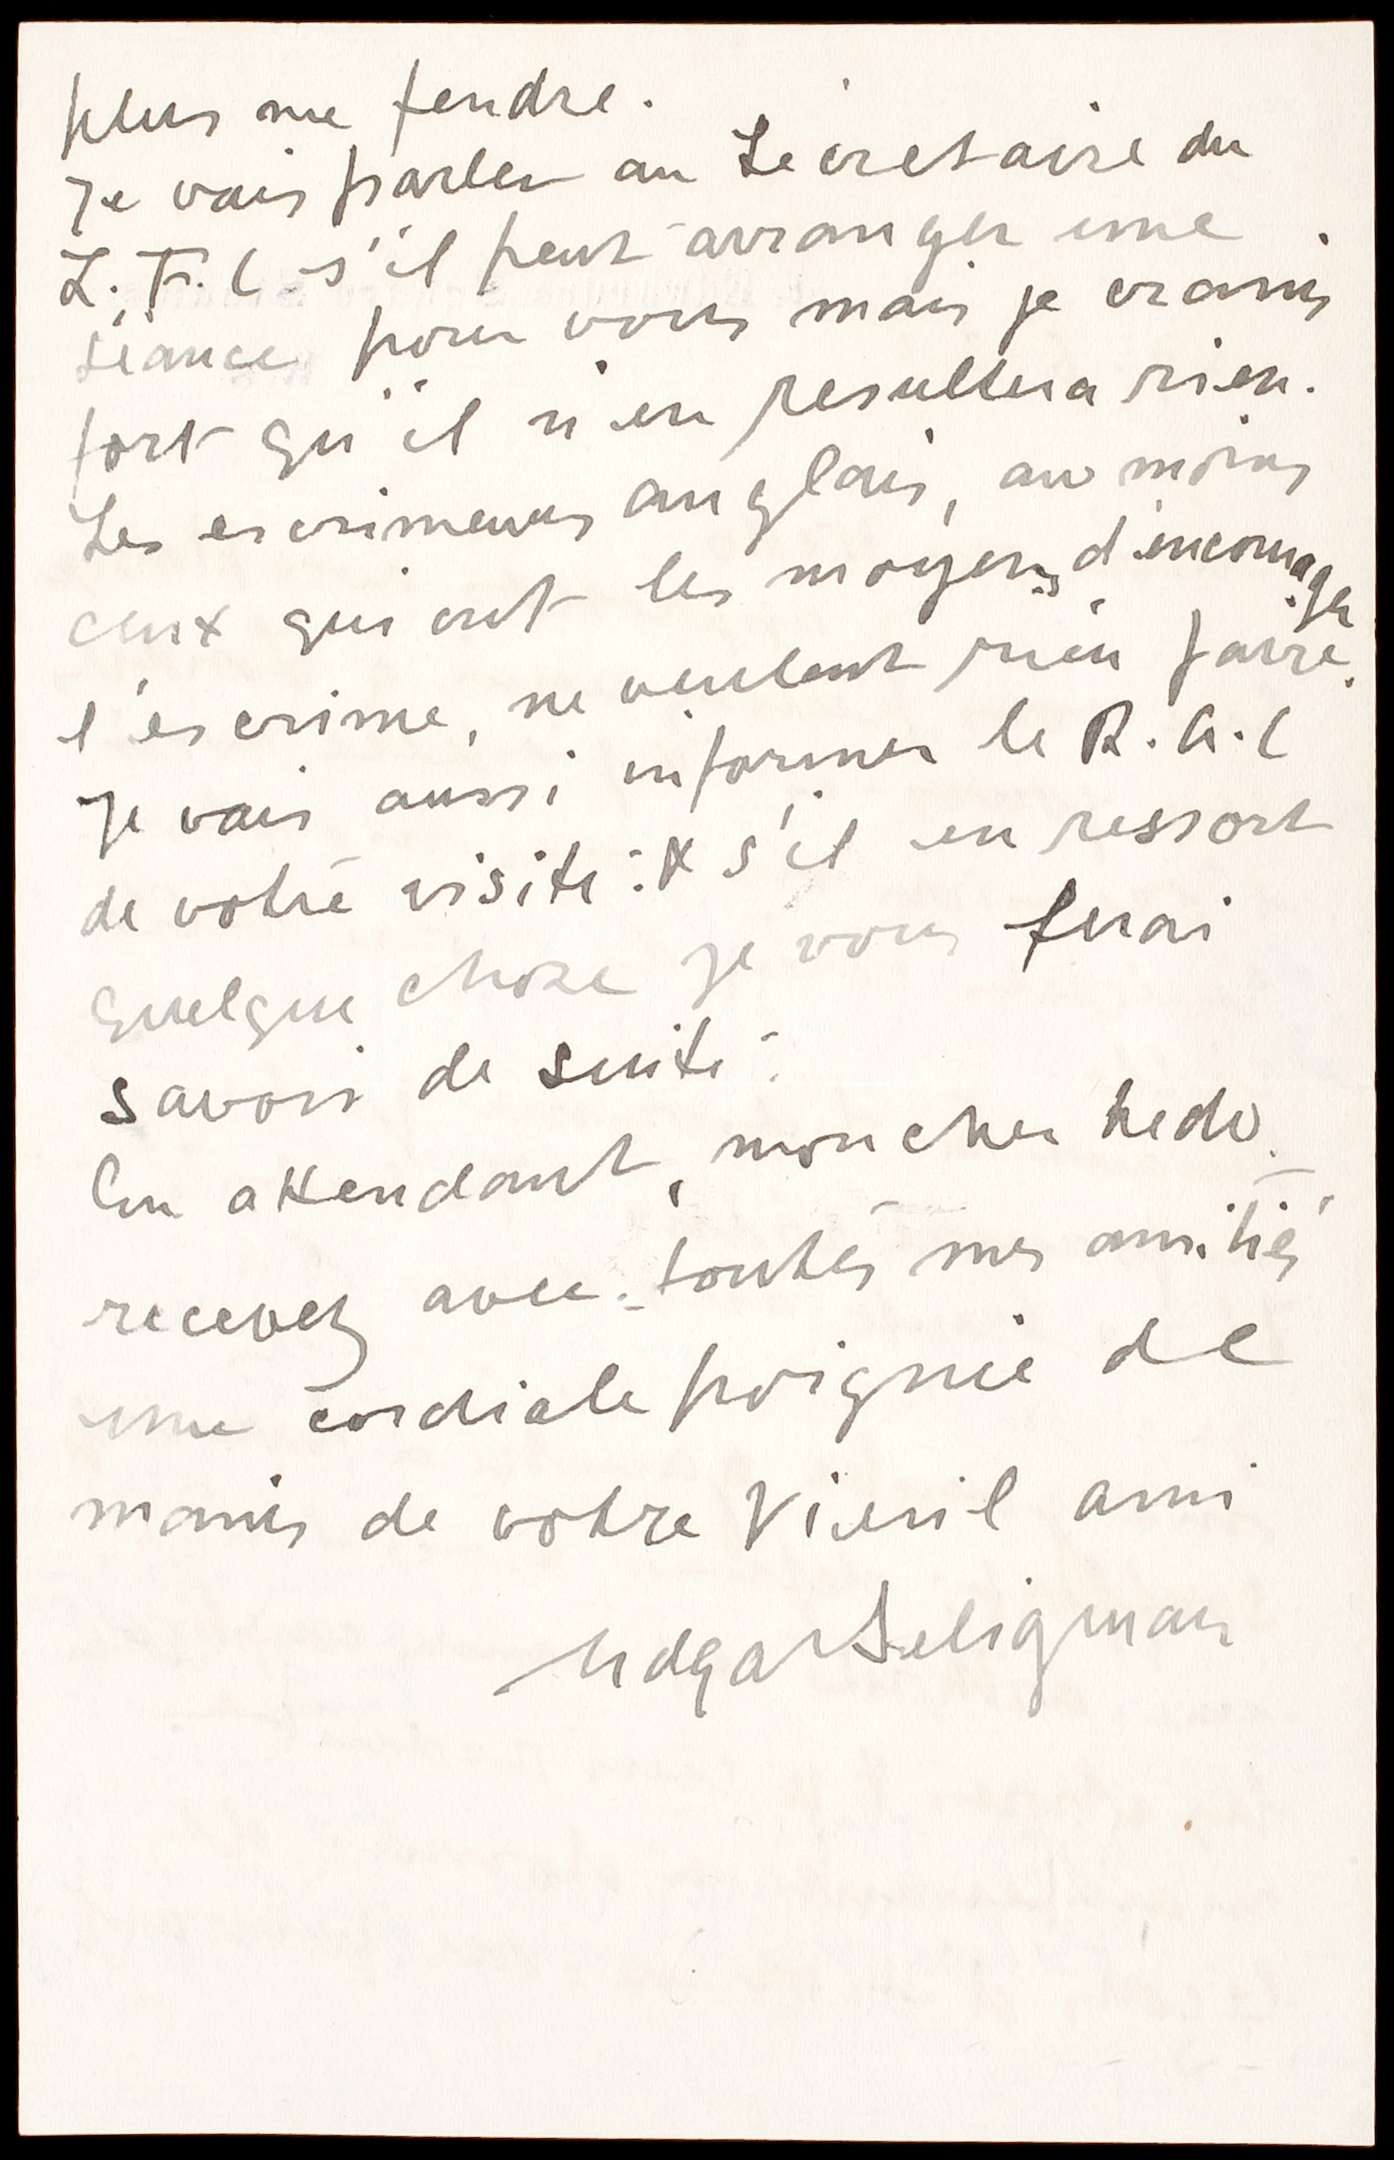 plus me fendre.
Je vais parler au Secretaire du
L.F.C s'il peut arranger une
séance pour vous mais je crains
fort qu'il n'en resultera rien.
Les escrimeurs anglais, au moins
ceux qui ont les moyens d'encourager
l'escrime, ne veulent rien faire.
Je vais aussi informer le R.A.C
de votre visite: & s'il en ressort
quelque chose je vous ferai
savoir de suite.
En attendant, mon cher Nedo
recevez avec toutes mes amitiés
une cordiale poignée de
mains de votre vieil ami
Edgar Seligman